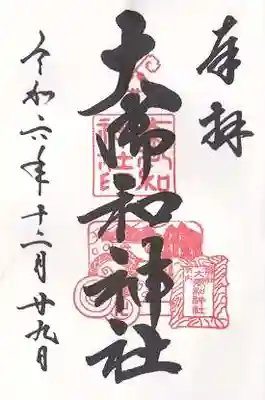 奉拝
大御和神社
令和六年十二月廿九日
大御和神社